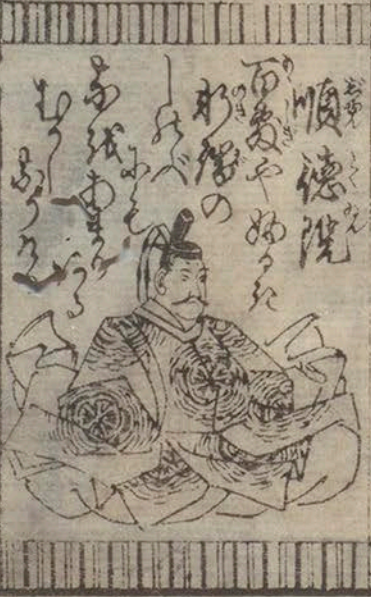 順徳院
百敷や婦るき
軒端の
しのぶ
にも
な越あまりある
むかし
なりけり